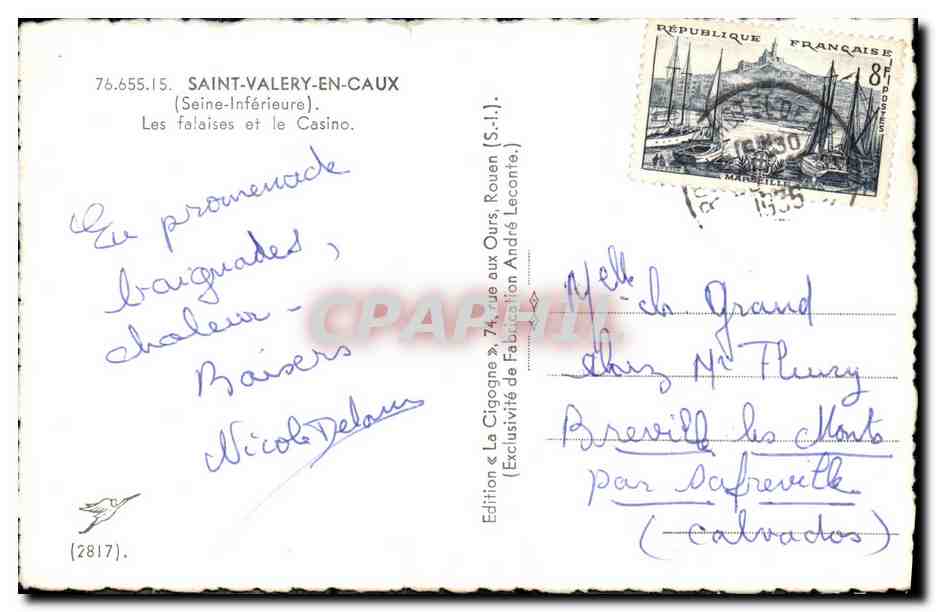 76.655.15. SAINT-VALERY-EN-CAUX
(Seine-Inférieure).
Les falaises et le Casino.
En promenade
baignades,
chaleur -
Baisers
Nicole
(2817).
Edition « La Cigogne », 74, rue aux Ours, Rouen (S.-I.).
(Exclusivité de Fabrication André Leconte.)
RÉPUBLIQUE FRANÇAISE
8F
POSTES
MARSEILLE
1955
CPAPHIL
Melle Ch. Grand
chez Mr Fleury
Breville les Monts
par Safreville
(Calvados)